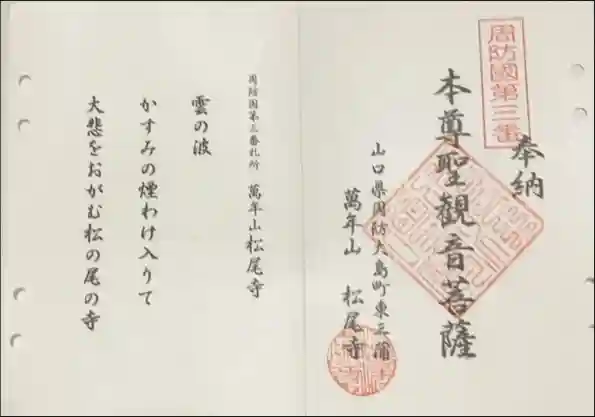 周防國第三番
奉納
本尊聖観音菩薩
山口県周防大島町東三蒲
萬年山 松尾寺
周防国第三番札所 萬年山松尾寺
雲の波
かすみの煙わけ入りて
大悲をおがむ松の尾の寺